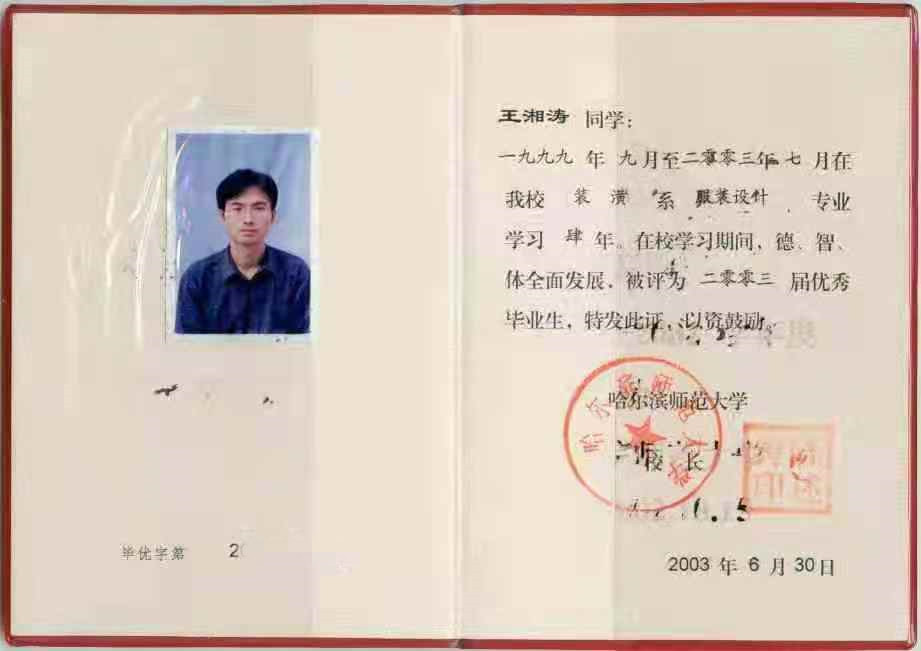 毕优字第 2
王湘涛 同学:
一九九九 年 九月至二零零三年 七月在
我校 装 潢 系 服装设计 专业
学习 肆 年。在校学习期间，德、智、
体全面发展，被评为 二零零三 届优秀
毕业生，特发此证，以资鼓励。
哈尔滨师范大学
校 长
2003 年 6 月 30 日